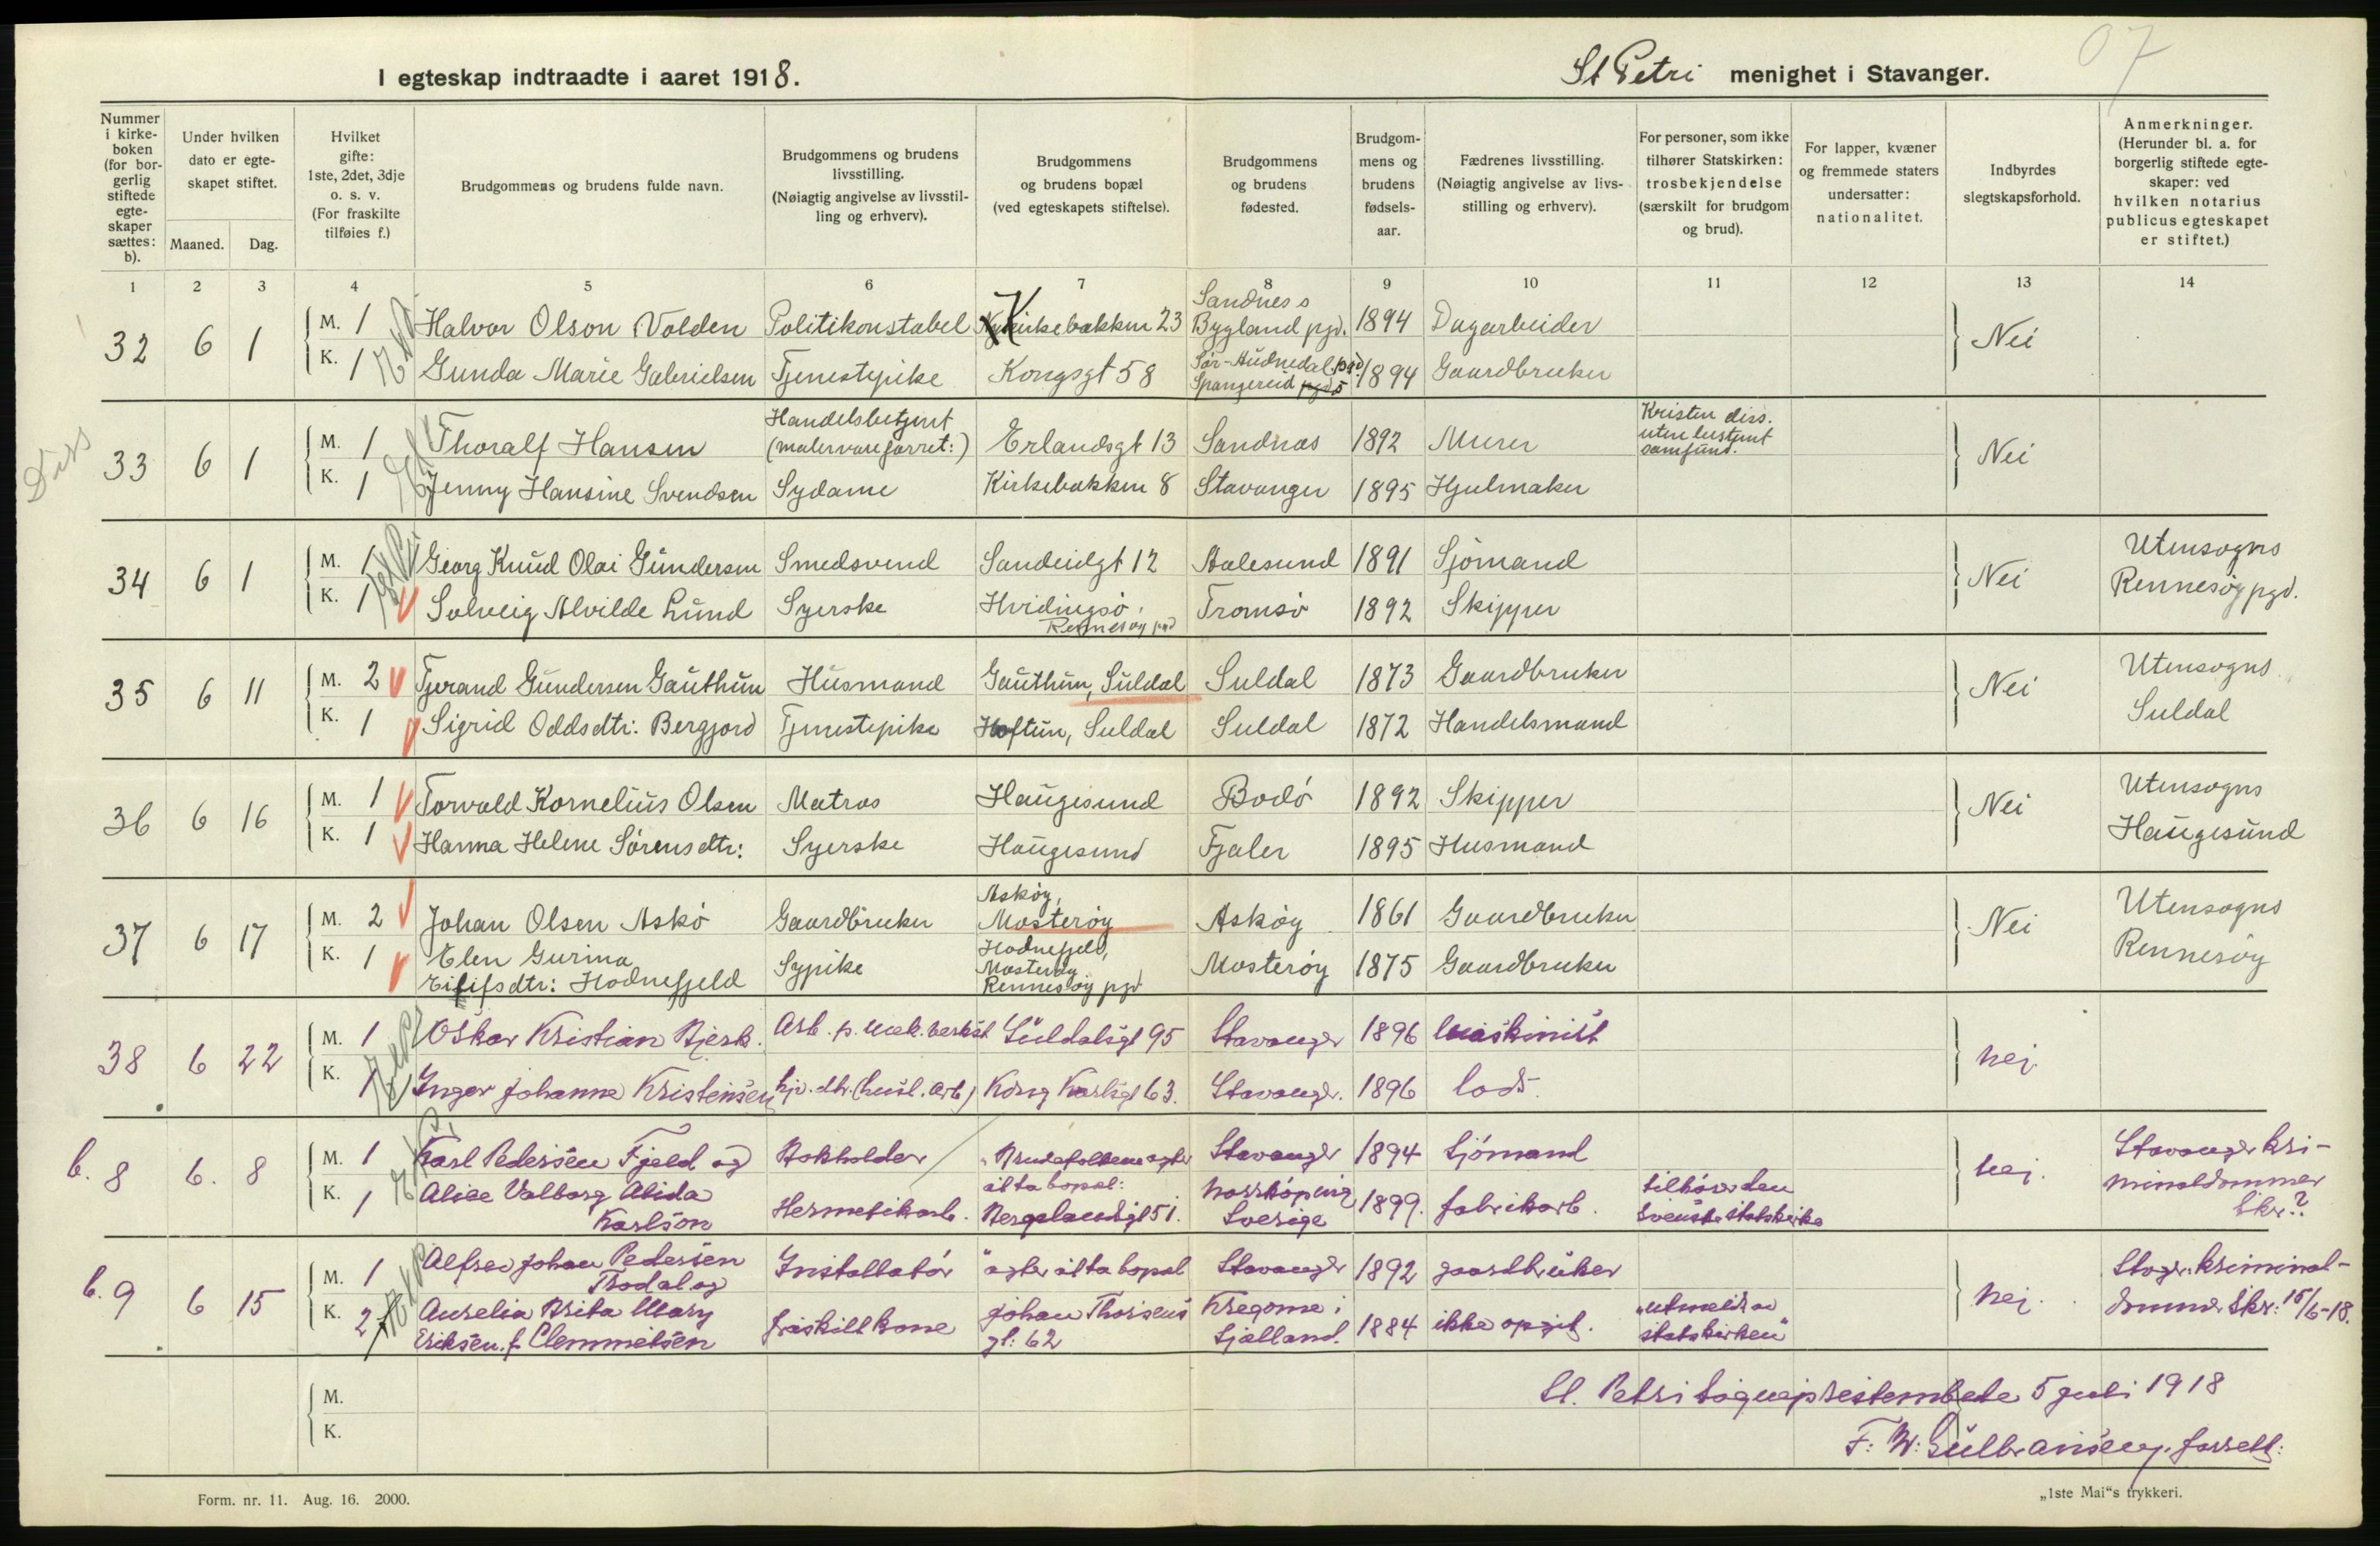 07
I egteskap indtraadte i aaret 1918.
St Petri menighet i Stavanger.
Nummer i kirkeboken (for borgerlig stiftede egteskaper sættes: b).
Under hvilken dato er egteskapet stiftet.
Maaned. Dag.
Hvilket gifte: 1ste, 2det, 3dje o. s. v. (For fraskilte tilføies f.)
Brudgommens og brudens fulde navn.
Brudgommens og brudens livsstilling. (Nøiagtig angivelse av livsstilling og erhverv).
Brudgommens og brudens bopæl (ved egteskapets stiftelse).
Brudgommens og brudens fødested.
Brudgommens og brudens fødselsaar.
Fædrenes livsstilling. (Nøiagtig angivelse av livsstilling og erhverv).
For personer, som ikke tilhører Statskirken: trosbekjendelse (særskilt for brudgom og brud).
For lapper, kvæner og fremmede staters undersatter: nationalitet.
Indbyrdes slegtskapsforhold.
Anmerkninger. (Herunder bl. a. for borgerlig stiftede egteskaper: ved hvilken notarius publicus egteskapet er stiftet.)
1 2 3 4 5 6 7 8 9 10 11 12 13 14
32 6 1 M. 1 Halvor Olson Volden Politikonstabel Kirkebakken 23 Sandnes s Bygland pgd. 1894 Dagarbeider Nei
K. 1 Gunda Marie Gabrielsen Tjenestepike Kongsgt 58 Sør-Audnedal pgd Spangereid 1894 Gaardbruker
Diss
33 6 1 M. 1 Thoralf Hansen Handelsbetjent (malervareforret:) Erlandsgt 13 Sandnæs 1892 Murer Kristen diss. uten bestemt samfund. Nei
K. 1 Jenny Hansine Svendsen Sydame Kirkebakken 8 Stavanger 1895 Hjulmaker
34 6 1 M. 1 Georg Knud Olai Gundersen Smedsvend Sandeidgt 12 Aalesund 1891 Sjömand Nei Utensogns Rennesøy pgd.
K. 1 Solveig Alvilde Lund Syerske Hvidingsö, Rennesøy pgd Tromsö 1892 Skipper
35 6 11 M. 2 Tjerand Gundersen Gauthun Husmand Gauthun, Suldal Suldal 1873 Gaardbruker Nei Utensogns Suldal
K. 1 Sigrid Oddsdtr: Bergjord Tjenestepike Hoftun, Suldal Suldal 1872 Handelsmand
36 6 16 M. 1 Torvald Kornelius Olsen Matros Haugesund Bodö 1892 Skipper Nei Utensogns Haugesund
K. 1 Hanna Helene Sörensdtr: Syerske Haugesund Fjaler 1895 Husmand
37 6 17 M. 2 Johan Olsen Askö Gaardbruker Askøy, Mosterøy Askøy 1861 Gaardbruker Nei Utensogns Rennesøy
K. 1 Elen Gurina Eilifsdtr: Hodnefjeld Sypike Hodnefjeld, Mosterøy Rennesøy pgd Mosterøy 1875 Gaardbruker
38 6 22 M. 1 Oskar Kristian Bjerk. Arb. p. mek. verkst Suldalsgt 95 Stavanger 1896 maskinist nej.
K. 1 Inger Johanne Kristensen hj.v. dtr. (husl. arb) Kong Karlsgt 63. Stavanger. 1896 lods.
b. 8 6. 8 M. 1 Karl Pedersen Fjeld og Bokholder Brudefolkene agter at ta bopæl: Stavanger 1894 Sjömand nej. Stavanger kriminaldommer Skr.?
K. 1 Alice Valborg Alida Karlson Hermetikarb. Bergelandsgt 51. Norrköping Sverige 1899. fabrikarb. tilhörer den svenske statskirke
b. 9 6 15 M. 1 Alfred Johan Pedersen Thodal og Installatör agter at ta bopæl Stavanger 1892 gaardbruker nej. Stvgr. kriminaldommer Skr: 15/6-18.
K. 2 f Aurelia Brita Mary Eriksen f. Clemmetsen fraskilt kone Johan Thorsens gt: 62 Kregome i Sjælland. 1884 ikke opgit. "utmeldt av statskirken"
M.
K.
St. Petri sogneprestembede 5 juli 1918
F. W. Gulbransen. forrett:
Form. nr. 11. Aug. 16. 2000.
„1ste Mai“s trykkeri.